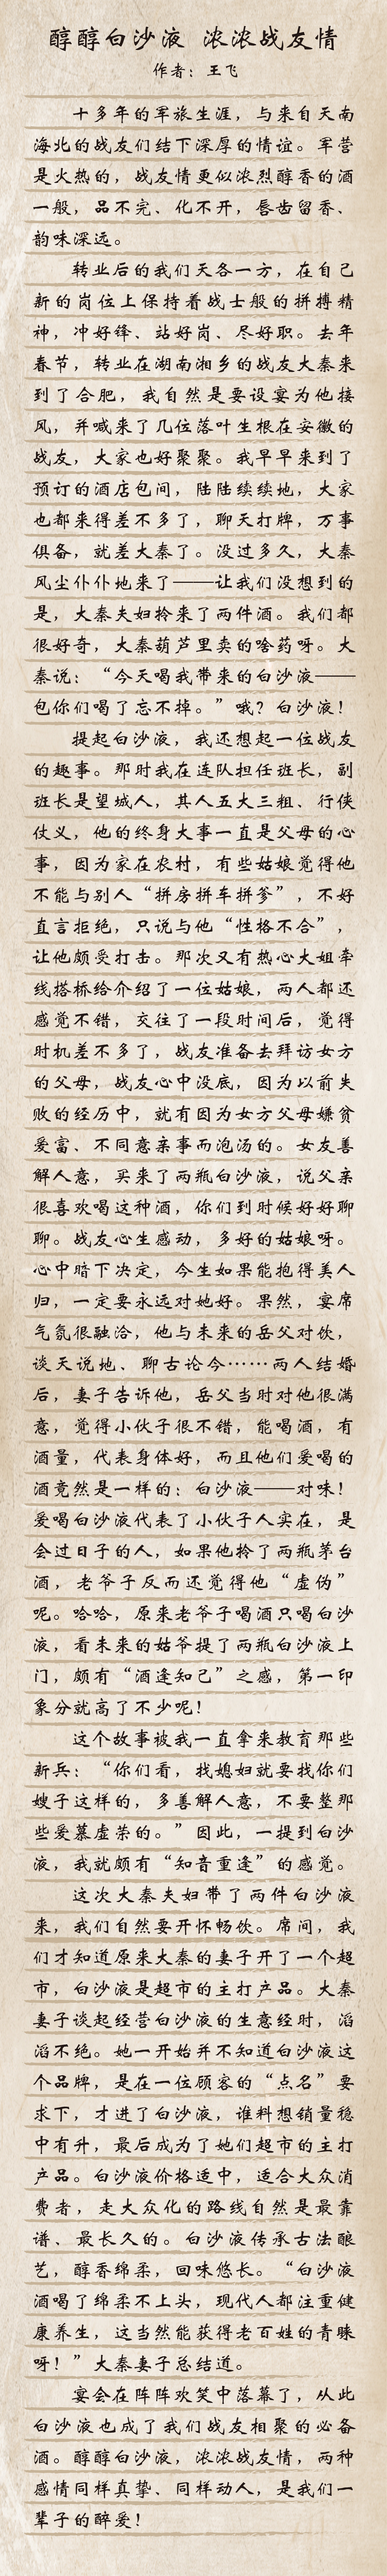 醇醇白沙液 浓浓战友情
作者：王飞
十多年的军旅生涯，与来自天南
海北的战友们结下深厚的情谊。军营
是火热的，战友情更似浓烈醇香的酒
一般，品不完、化不开，唇齿留香、
韵味深远。
转业后的我们天各一方，在自己
新的岗位上保持着战士般的拼搏精
神，冲好锋、站好岗、尽好职。去年
春节，转业在湖南湘乡的战友大秦来
到了合肥，我自然是要设宴为他接
风，并喊来了几位落叶生根在安徽的
战友，大家也好聚聚。我早早来到了
预订的酒店包间，陆陆续续地，大家
也都来得差不多了，聊天打牌，万事
俱备，就差大秦了。没过多久，大秦
风尘仆仆地来了——让我们没想到的
是，大秦夫妇拎来了两件酒。我们都
很好奇，大秦葫芦里卖的啥药呀。大
秦说：“今天喝我带来的白沙液——
包你们喝了忘不掉。”哦？白沙液！
提起白沙液，我还想起一位战友
的趣事。那时我在连队担任班长，副
班长是望城人，其人五大三粗、行侠
仗义，他的终身大事一直是父母的心
事，因为家在农村，有些姑娘觉得他
不能与别人“拼房拼车拼爹”，不好
直言拒绝，只说与他“性格不合”，
让他颇受打击。那次又有热心大姐牵
线搭桥给介绍了一位姑娘，两人都还
感觉不错，交往了一段时间后，觉得
时机差不多了，战友准备去拜访女方
的父母，战友心中没底，因为以前失
败的经历中，就有因为女方父母嫌贫
爱富、不同意亲事而泡汤的。女友善
解人意，买来了两瓶白沙液，说父亲
很喜欢喝这种酒，你们到时候好好聊
聊。战友心生感动，多好的姑娘呀。
心中暗下决定，今生如果能抱得美人
归，一定要永远对她好。果然，宴席
气氛很融洽，他与未来的岳父对饮，
谈天说地、聊古论今……两人结婚
后，妻子告诉他，岳父当时对他很满
意，觉得小伙子很不错，能喝酒，有
酒量，代表身体好，而且他们爱喝的
酒竟然是一样的：白沙液——对味！
爱喝白沙液代表了小伙子人实在，是
会过日子的人，如果他拎了两瓶茅台
酒，老爷子反而还觉得他“虚伪”
呢。哈哈，原来老爷子喝酒只喝白沙
液，看未来的姑爷提了两瓶白沙液上
门，颇有“酒逢知己”之感，第一印
象分就高了不少呢！
这个故事被我一直拿来教育那些
新兵：“你们看，找媳妇就要找你们
嫂子这样的，多善解人意，不要整那
些爱慕虚荣的。”因此，一提到白沙
液，我就颇有“知音重逢”的感觉。
这次大秦夫妇带了两件白沙液
来，我们自然要开怀畅饮。席间，我
们才知道原来大秦的妻子开了一个超
市，白沙液是超市的主打产品。大秦
妻子谈起经营白沙液的生意经时，滔
滔不绝。她一开始并不知道白沙液这
个品牌，是在一位顾客的“点名”要
求下，才进了白沙液，谁料想销量稳
中有升，最后成为了她们超市的主打
产品。白沙液价格适中，适合大众消
费者，走大众化的路线自然是最靠
谱、最长久的。白沙液传承古法酿
艺，醇香绵柔，回味悠长。“白沙液
酒喝了绵柔不上头，现代人都注重健
康养生，这当然能获得老百姓的青睐
呀！”大秦妻子总结道。
宴会在阵阵欢笑中落幕了，从此
白沙液也成了我们战友相聚的必备
酒。醇醇白沙液，浓浓战友情，两种
感情同样真挚、同样动人，是我们一
辈子的醉爱！